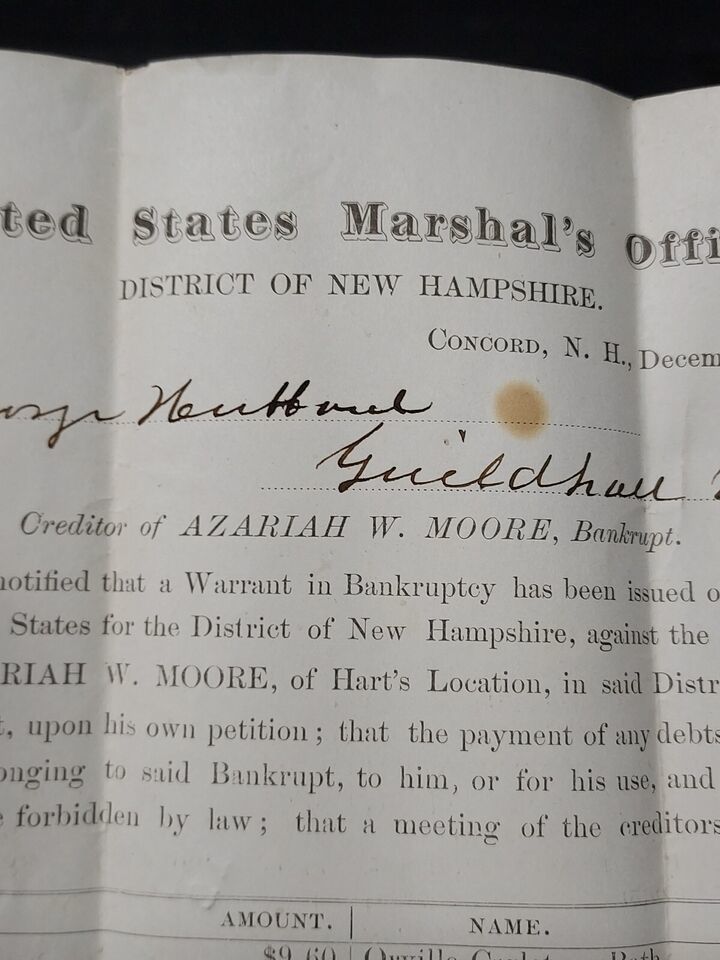 ted States Marshal's Offi
DISTRICT OF NEW HAMPSHIRE.
CONCORD, N. H., Decem
Hubbard
Guildhall
Creditor of AZARIAH W. MOORE, Bankrupt.
notified that a Warrant in Bankruptcy has been issued o
States for the District of New Hampshire, against the
RIAH W. MOORE, of Hart's Location, in said Distr
t, upon his own petition; that the payment of any debts
onging to said Bankrupt, to him, or for his use, and
e forbidden by law; that a meeting of the creditors
AMOUNT. NAME.
$9.60